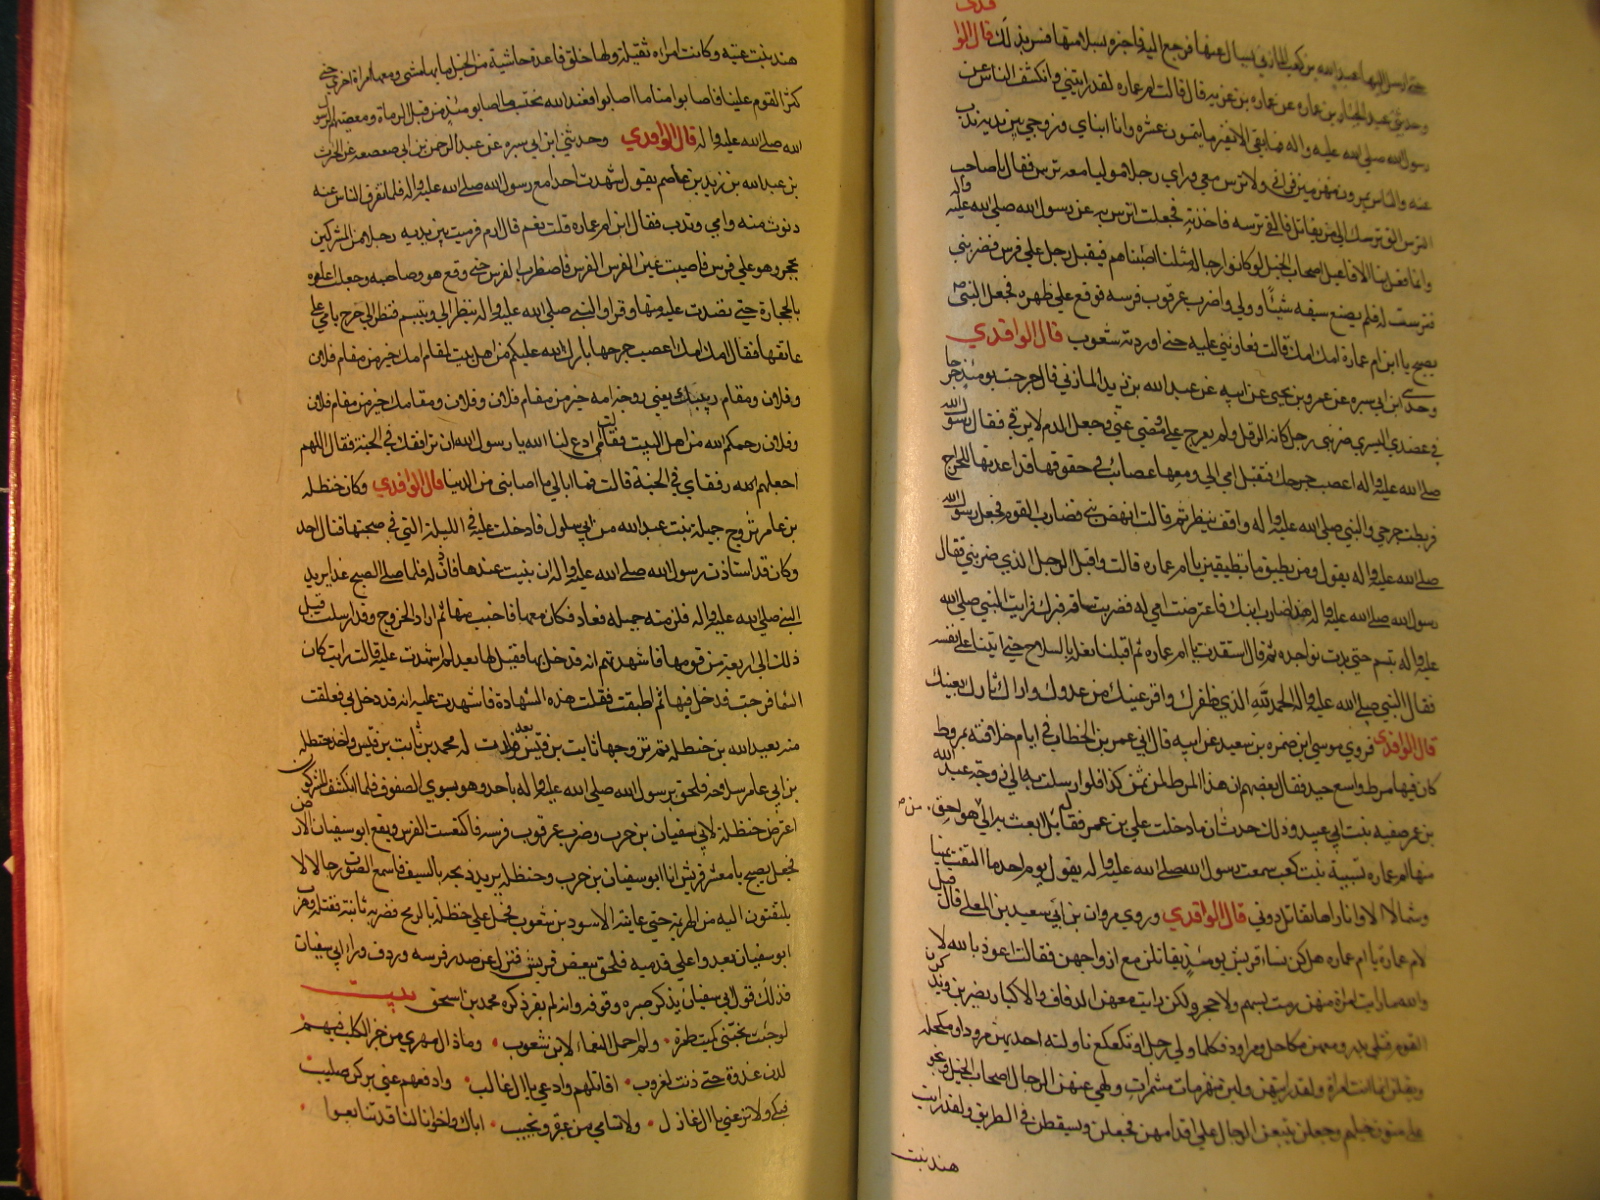 حتى ارسل اليها عبد الله بن كعب المازني يسال عنها فرجع اليه فاخبره بسلامتها فسر بذلك قال الوا
قدي
وحدثني عبد الجبار بن عماره عن عماره بن غزيه قال قالت ام عماره لقد رايتني وانكشف الناس عن
رسول الله صلى الله عليه واله فما بقي الا نفير ما يتمون عشره وانا ابناي وزوجي بين يديه نذب
عنه والناس يمرون به منهزمين ولا ترس معي وراي رجلا موليا معه ترس فقال يا صاحب
الترس الق ترسك الى من يقاتل فالقى ترسه فاخذته فجعلت اترس به عن رسول الله صلى الله عليه واله
وانما فعل بنا الافاعيل اصحاب الخيل لو كانوا رجالة مثلنا اصبناهم فيقبل رجل على فرس فضربني
وتترست له فلم يصنع سيفه شيئا وولى واضرب عرقوب فرسه فوقع على ظهره فجعل النبي ص
يصيح يا ابن ام عمارة امك امك قالت فعاونني عليه حتى اوردته شعوب قال الواقدي
وحدثني ابن ابي سبره عن عمرو بن يحيى عن ابيه عن عبد الله بن زيد المازني قال جرحت يومئذ جرحا
في عضدي اليسرى ضربني رجل كانه الرقل ولم يعرج علي ومضى عني وجعل الدم لا يرقى فقال رسول الله
صلى الله عليه واله اعصب جرحك فتقبل امي الي ومعها عصائب في حقوها قد اعدتها للجراح
فربطت جرحي والنبي صلى الله عليه واله واقف ينظر ثم قالت انهض بني فضارب القوم فجعل رسول الله
صلى الله عليه واله يقول ومن يطيق ما تطيقين يا ام عماره قالت واقبل الرجل الذي ضربني فقال
رسول الله صلى الله عليه واله هذا ضارب ابنك فاعترضت امي له فضربت ساقه فبرك فرايت النبي صلى الله
عليه واله تبسم حتى بدت نواجده ثم قال استقدت يا ام عماره ثم اقبلنا نعله بالسلاح حتى اتينا على نفسه
فقال النبي صلى الله عليه واله الحمد لله الذي ظفرك واقر عينك من عدوك واراك ثارك بعينك
قال الواقدي فروي موسى ابن ضمره بن سعيد عن ابيه قال اتي عمر بن الخطاب في ايام خلافته بمروط
كان فيها مرط واسع جيد فقال بعضهم ان هذا المرط لمن ثمن كذا فلو ارسلت به الى زوجة عبد الله
بن عمر صفيه بنت ابي عبيد وذلك حدثان ما دخلت على بن عمر فقال بل ابعث به الى من هو احق
منها ام عماره نسيبة بنت كعب سمعت رسول الله صلى الله عليه واله يقول يوم احد ما التفت يمينا
وشمالا الا وانا اراها تقاتل دوني قال الواقدي وروي مروان بن ابي سعيد بن المعلى قال قيل
لام عمارة يا ام عماره هل كن نساء قريش يومئذ يقاتلن مع ازواجهن فقالت اعوذ بالله لا
والله ما رايت امراة منهن رمت بسهم ولا حجر ولكن رايت معهن الدفاف والاكبار يضربن ويذكرن
القوم قتلى بدر ومعهن مكاحل ومراود فكلما ولى رجل او تكعكع ناولته احديهن مرودا ومكحله
ويقلن انما انت امراة ولقد رايتهن ولين منهزمات مشمرات ولهى عنهن الرجال اصحاب الخيل ونجو
على متون خيلهم وجعلن يتبعن الرجال على اقدامهن فجعلن يسقطن في الطريق ولقد رايت
هند بنت
هند بنت عتبه وكانت امراه ثقيلة ولها خلق قاعدة خاشية من الخيل ما بها مشى ومعها امراة اخرى حتى
كثر القوم علينا فاصابوا منا ما اصابوا فعند الله نحتسب ما اصابنا يومئذ من قبل الرماة ومعصيتهم لرسول
الله صلى الله عليه واله قال الواقدي وحدثني ابن ابي سبره عن عبد الرحمن بن ابي صعصعه عن الحرث
بن عبد الله بن زيد بن عاصم يقول شهدت احدا مع رسول الله صلى الله عليه واله فلما تفرق الناس عنه
دنوت منه وامي تذب فقال ابن ام عماره قلت نعم قال ارم فرميت بين يديه رجلا من المشركين
بحجر وهو على فرس فاصيبت عين الفرس فاضطرب الفرس حتى وقع هو وصاحبه وجعلت اعلوه
بالحجارة حتى نضدت عليه منها وقرا والنبي صلى الله عليه واله ينظر الي ويتبسم فنظر الى جرح بامي على
عاتقها فقال امك امك اعصب جرحها بارك الله عليكم من اهل بيت لمقام امك خير من مقام فلان
وفلان ومقام ربيبك يعني زوج امه خير من مقام فلان وفلان ومقامك خير من مقام فلان
وفلان رحمكم الله من اهل البيت فقالت امي ادع لنا الله يا رسول الله ان نرافقك في الجنة فقال اللهم
اجعلهم رفقاي في الجنة قالت فما ابالي ما اصابني من الدنيا قال الواقدي وكان حنظله
بن عامر تزوج جميلة بنت عبد الله بن ابي سلول فادخلت عليه في الليلة التي في صبحتها قتال احد
وكان قد استاذن رسول الله صلى الله عليه واله ان يبيت عندها فاذن له فلما صلى الصبح غدا يريد
النبي صلى الله عليه واله فلزمته جميله فعاد فكان معها فاجنب منها ثم اراد الخروج وقد ارسلت قبل
ذلك الى اربعة من قومها فاشهدتهم انه قد دخل بها فقيل لها بعد لم اشهدت عليه قالت رايت كان
السماء فرجت فدخل فيها ثم اطبقت فقلت هذه الشهادة فاشهدت عليه انه قد دخل بي فعلقت
منه بعبد الله بن حنظله ثم تزوجها ثابت بن قيس بعد فولدت له محمد بن ثابت بن قيس واخذ حنظله
بن ابي عامر سلاحه فلحق برسول الله صلى الله عليه واله باحد وهو يسوي الصفوف فلما انكشف المشركون
اعترض حنظلة لابي سفيان بن حرب وضرب عرقوب فرسه فاكتسعت الفرس ويقع ابو سفيان الارض
فجعل يصيح يا معشر قريش انا ابو سفيان بن حرب وحنظله يريد ذبحه بالسيف فاسمع الصوت رجالا لا
يلتفتون اليه من الهزيمة حتى عاينه الاسود بن شعوب فحمل على حنظله بالرمح فضربه ثانية فقتله وهرب
ابو سفيان يعدو على قدميه فلحق ببعض قريش فنزل عن صدر فرسه وردف وراء ابي سفيان
فذلك قول ابي سفيان يذكر صبره ووقوفه وانه لم يفر ذكره محمد بن اسحق
ولو شئت نجتني كميت طمرة ولم احمل النعماء لابن شعوب وما زال مهري مزجر الكلب فيهم
لدن غدوة حتى دنت لغروب اقاتلهم وادعي يال غالب وادفعهم عني بركن صليب
فبكي ولا ترعي ل ولا تسامي من عبرة ونحيب اباك واخوانا لنا قد تتابعوا